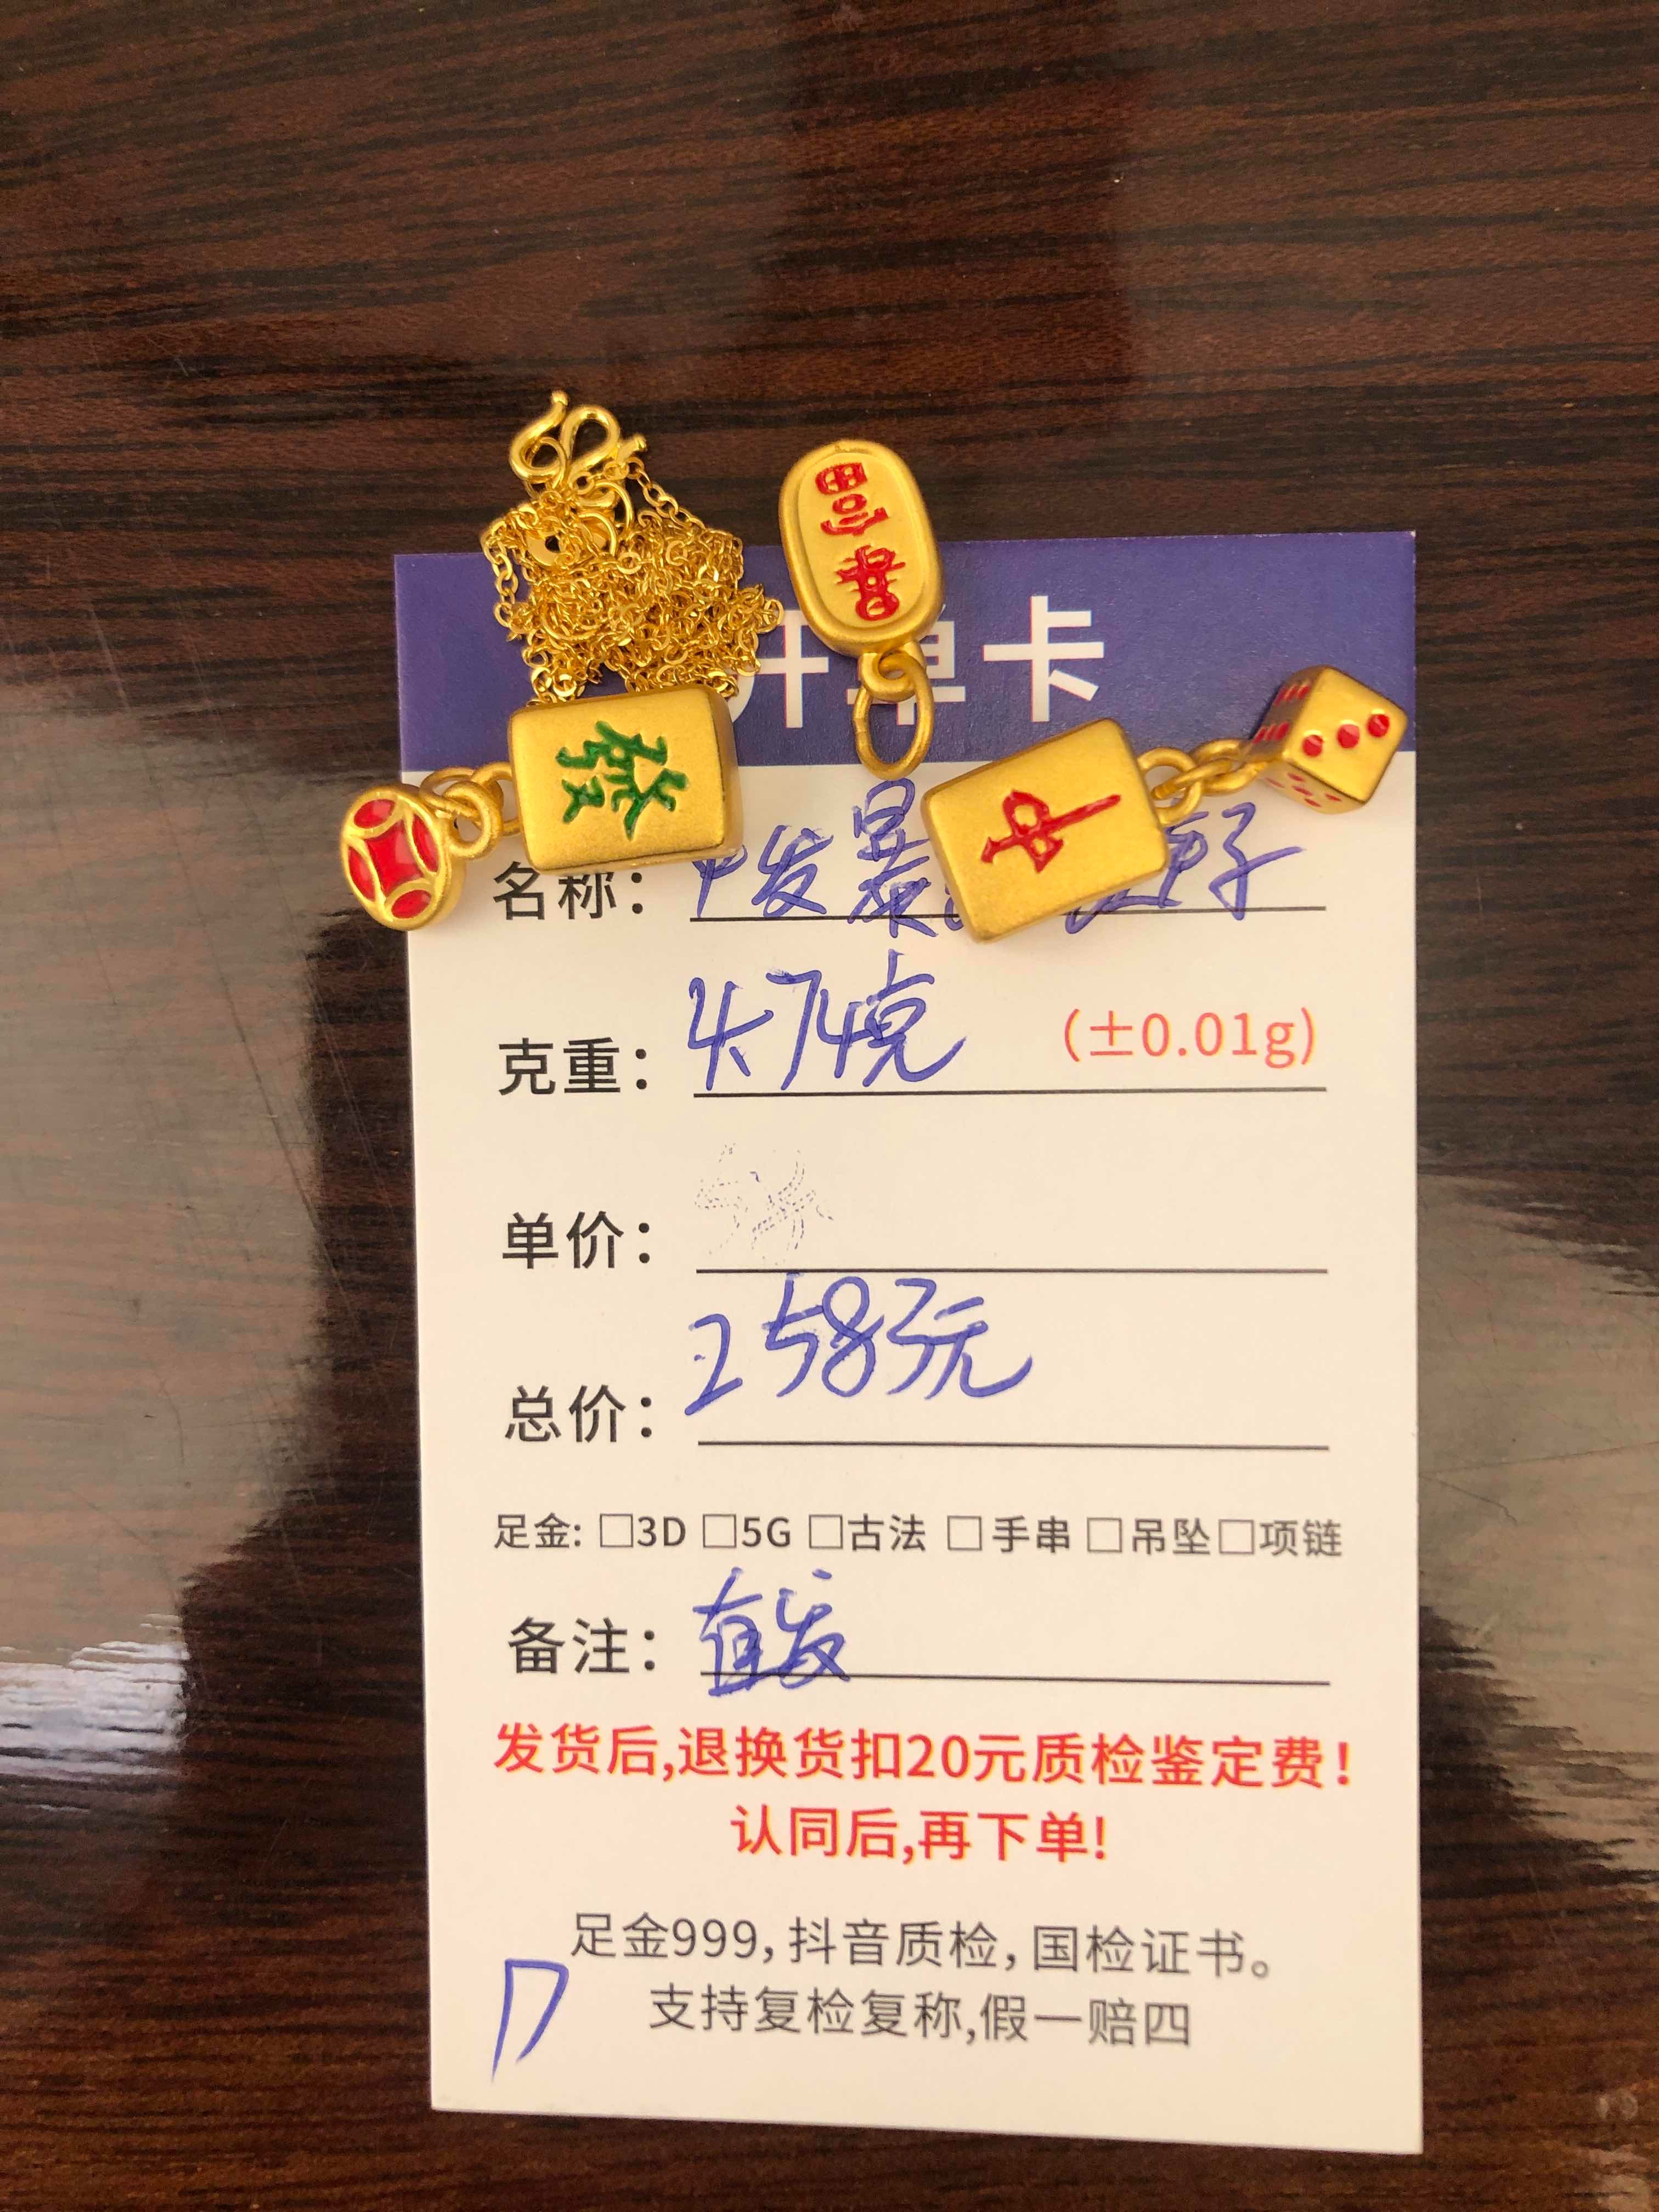 暴富
發
中
开单卡
名称：中发暴
克重：4.74克 (±0.01g)
单价：
总价：2583元
足金: □3D □5G □古法 □手串 □吊坠□项链
备注：直发
发货后,退换货扣20元质检鉴定费！
认同后,再下单!
足金999,抖音质检,国检证书。
支持复检复称,假一赔四